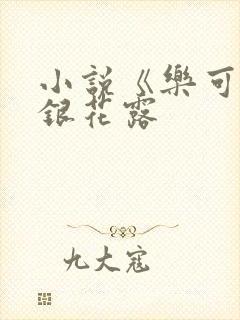 小説《樂可
銀花露
九大寇